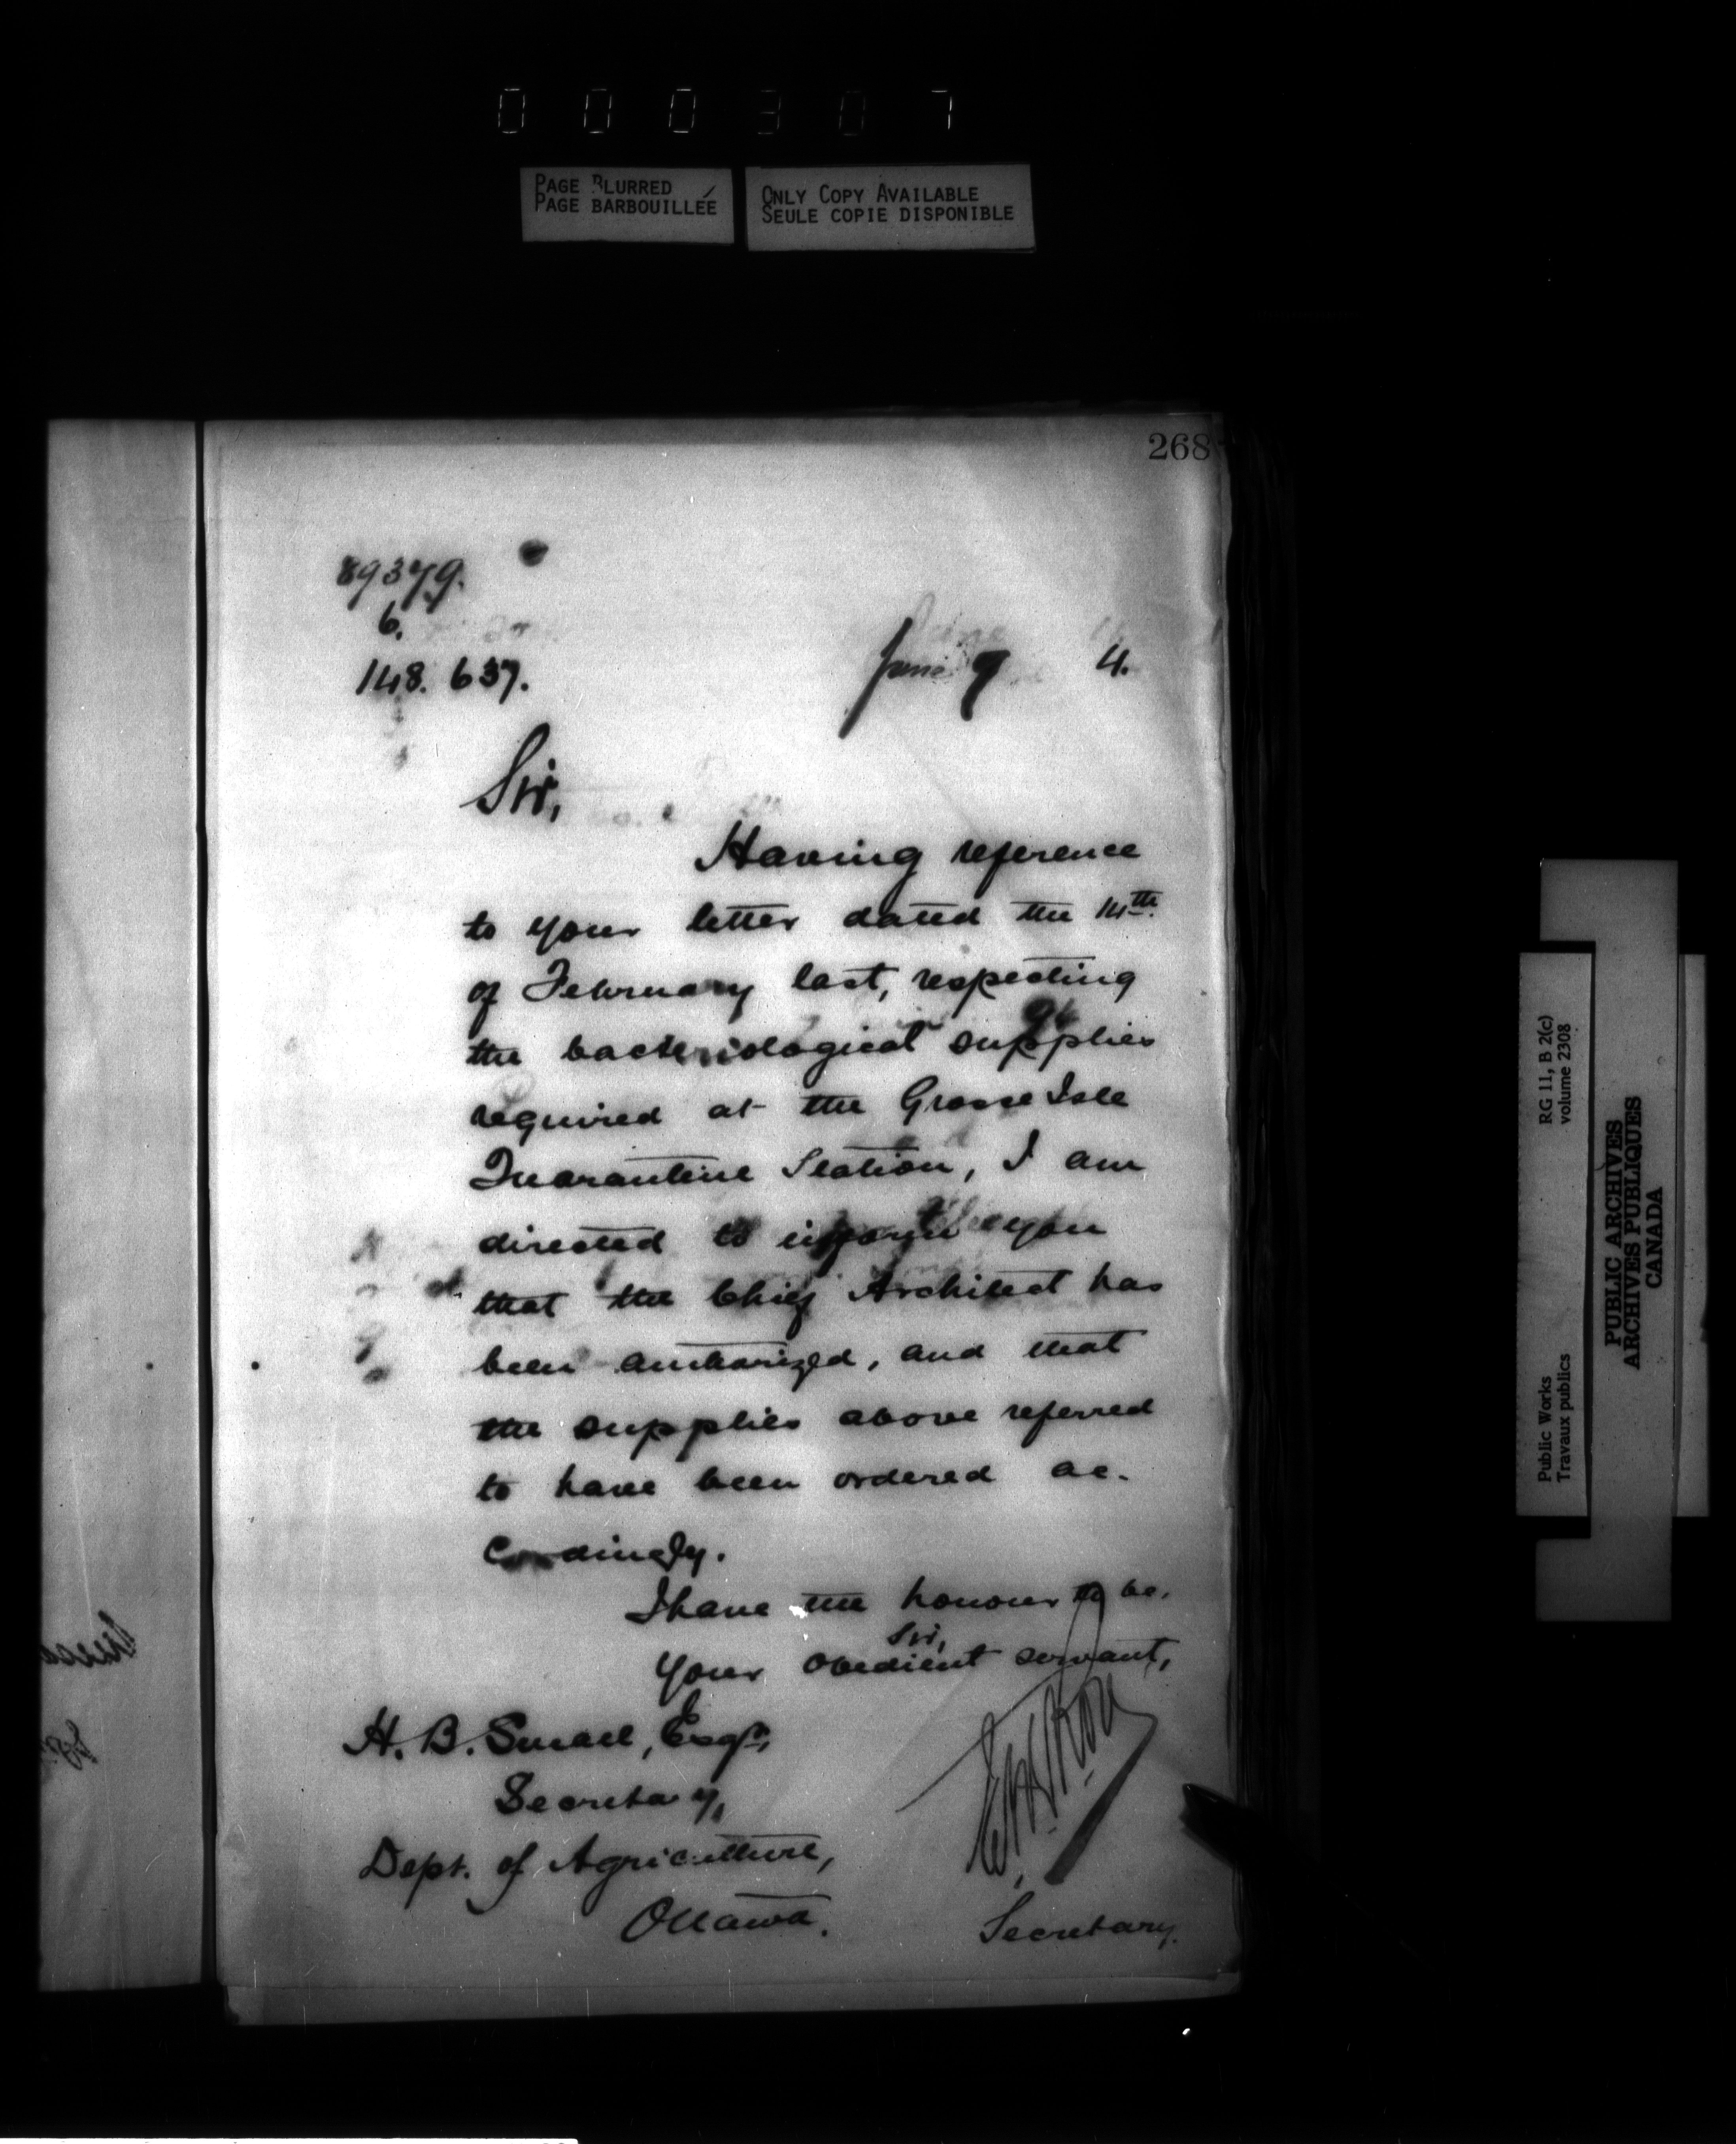 000307
PAGE BLURRED
PAGE BARBOUILLÉE
ONLY COPY AVAILABLE
SEULE COPIE DISPONIBLE
268
89379.
6.
148. 637.
June 7 4.
Sir,
Having reference
to your letter dated the 14th.
of February last, respecting
the bacteriological supplies
required at the Grosse Isle
Quarantine Station, I am
directed to inform you
that the Chief Architect has
been authorized, and that
the supplies above referred
to have been ordered ac-
cordingly.
I have the honour to be,
Sir,
Your obedient servant,
H. B. Small, Esqr.,
Secretary,
Dept. of Agriculture,
Ottawa.
Secretary.
RG 11, B 2(c)
volume 2308
Public Works
Travaux publics
PUBLIC ARCHIVES
ARCHIVES PUBLIQUES
CANADA